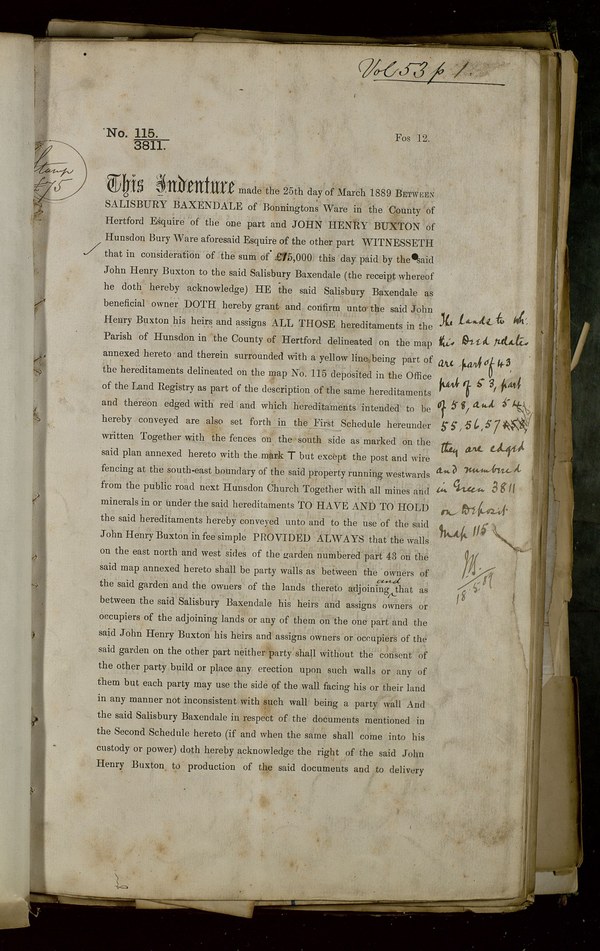 Vol 53 p 1.
No. 115.
3811.
Fos 12.
Stamp
£75
This Indenture made the 25th day of March 1889 BETWEEN
SALISBURY BAXENDALE of Bonningtons Ware in the County of
Hertford Esquire of the one part and JOHN HENRY BUXTON of
Hunsdon Bury Ware aforesaid Esquire of the other part WITNESSETH
that in consideration of the sum of £15,000 this day paid by the said
John Henry Buxton to the said Salisbury Baxendale (the receipt whereof
he doth hereby acknowledge) HE the said Salisbury Baxendale as
beneficial owner DOTH hereby grant and confirm unto the said John
Henry Buxton his heirs and assigns ALL THOSE hereditaments in the
Parish of Hunsdon in the County of Hertford delineated on the map
annexed hereto and therein surrounded with a yellow line, being part of
the hereditaments delineated on the map No. 115 deposited in the Office
of the Land Registry as part of the description of the same hereditaments
and thereon edged with red and which hereditaments intended to be
hereby conveyed are also set forth in the First Schedule hereunder
written Together with the fences on the south side as marked on the
said plan annexed hereto with the mark T but except the post and wire
fencing at the south-east boundary of the said property running westwards
from the public road next Hunsdon Church Together with all mines and
minerals in or under the said hereditaments TO HAVE AND TO HOLD
the said hereditaments hereby conveyed unto and to the use of the said
John Henry Buxton in fee simple PROVIDED ALWAYS that the walls
on the east north and west sides of the garden numbered part 43 on the
said map annexed hereto shall be party walls as between the owners of
the said garden and the owners of the lands thereto adjoining and that as
between the said Salisbury Baxendale his heirs and assigns owners or
occupiers of the adjoining lands or any of them on the one part and the
said John Henry Buxton his heirs and assigns owners or occupiers of the
said garden on the other part neither party shall without the consent of
the other party build or place any erection upon such walls or any of
them but each party may use the side of the wall facing his or their land
in any manner not inconsistent with such wall being a party wall And
the said Salisbury Baxendale in respect of the documents mentioned in
the Second Schedule hereto (if and when the same shall come into his
custody or power) doth hereby acknowledge the right of the said John
Henry Buxton to production of the said documents and to delivery
The Lands to wh.
this Deed relates
are part of 43
part of 53, part
of 58, and 54
55, 56, 57 & 58
they are edged
and numbered
in Green 3811
on Deposit
Map 115
18.5.89